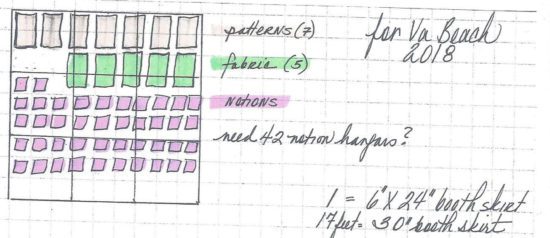 patterns (7)
for Va Beach
2018
fabric (5)
notions
need 42 notion hangars?
1 = 6" X 24" booth skirt
17 feet = 30" booth skirt